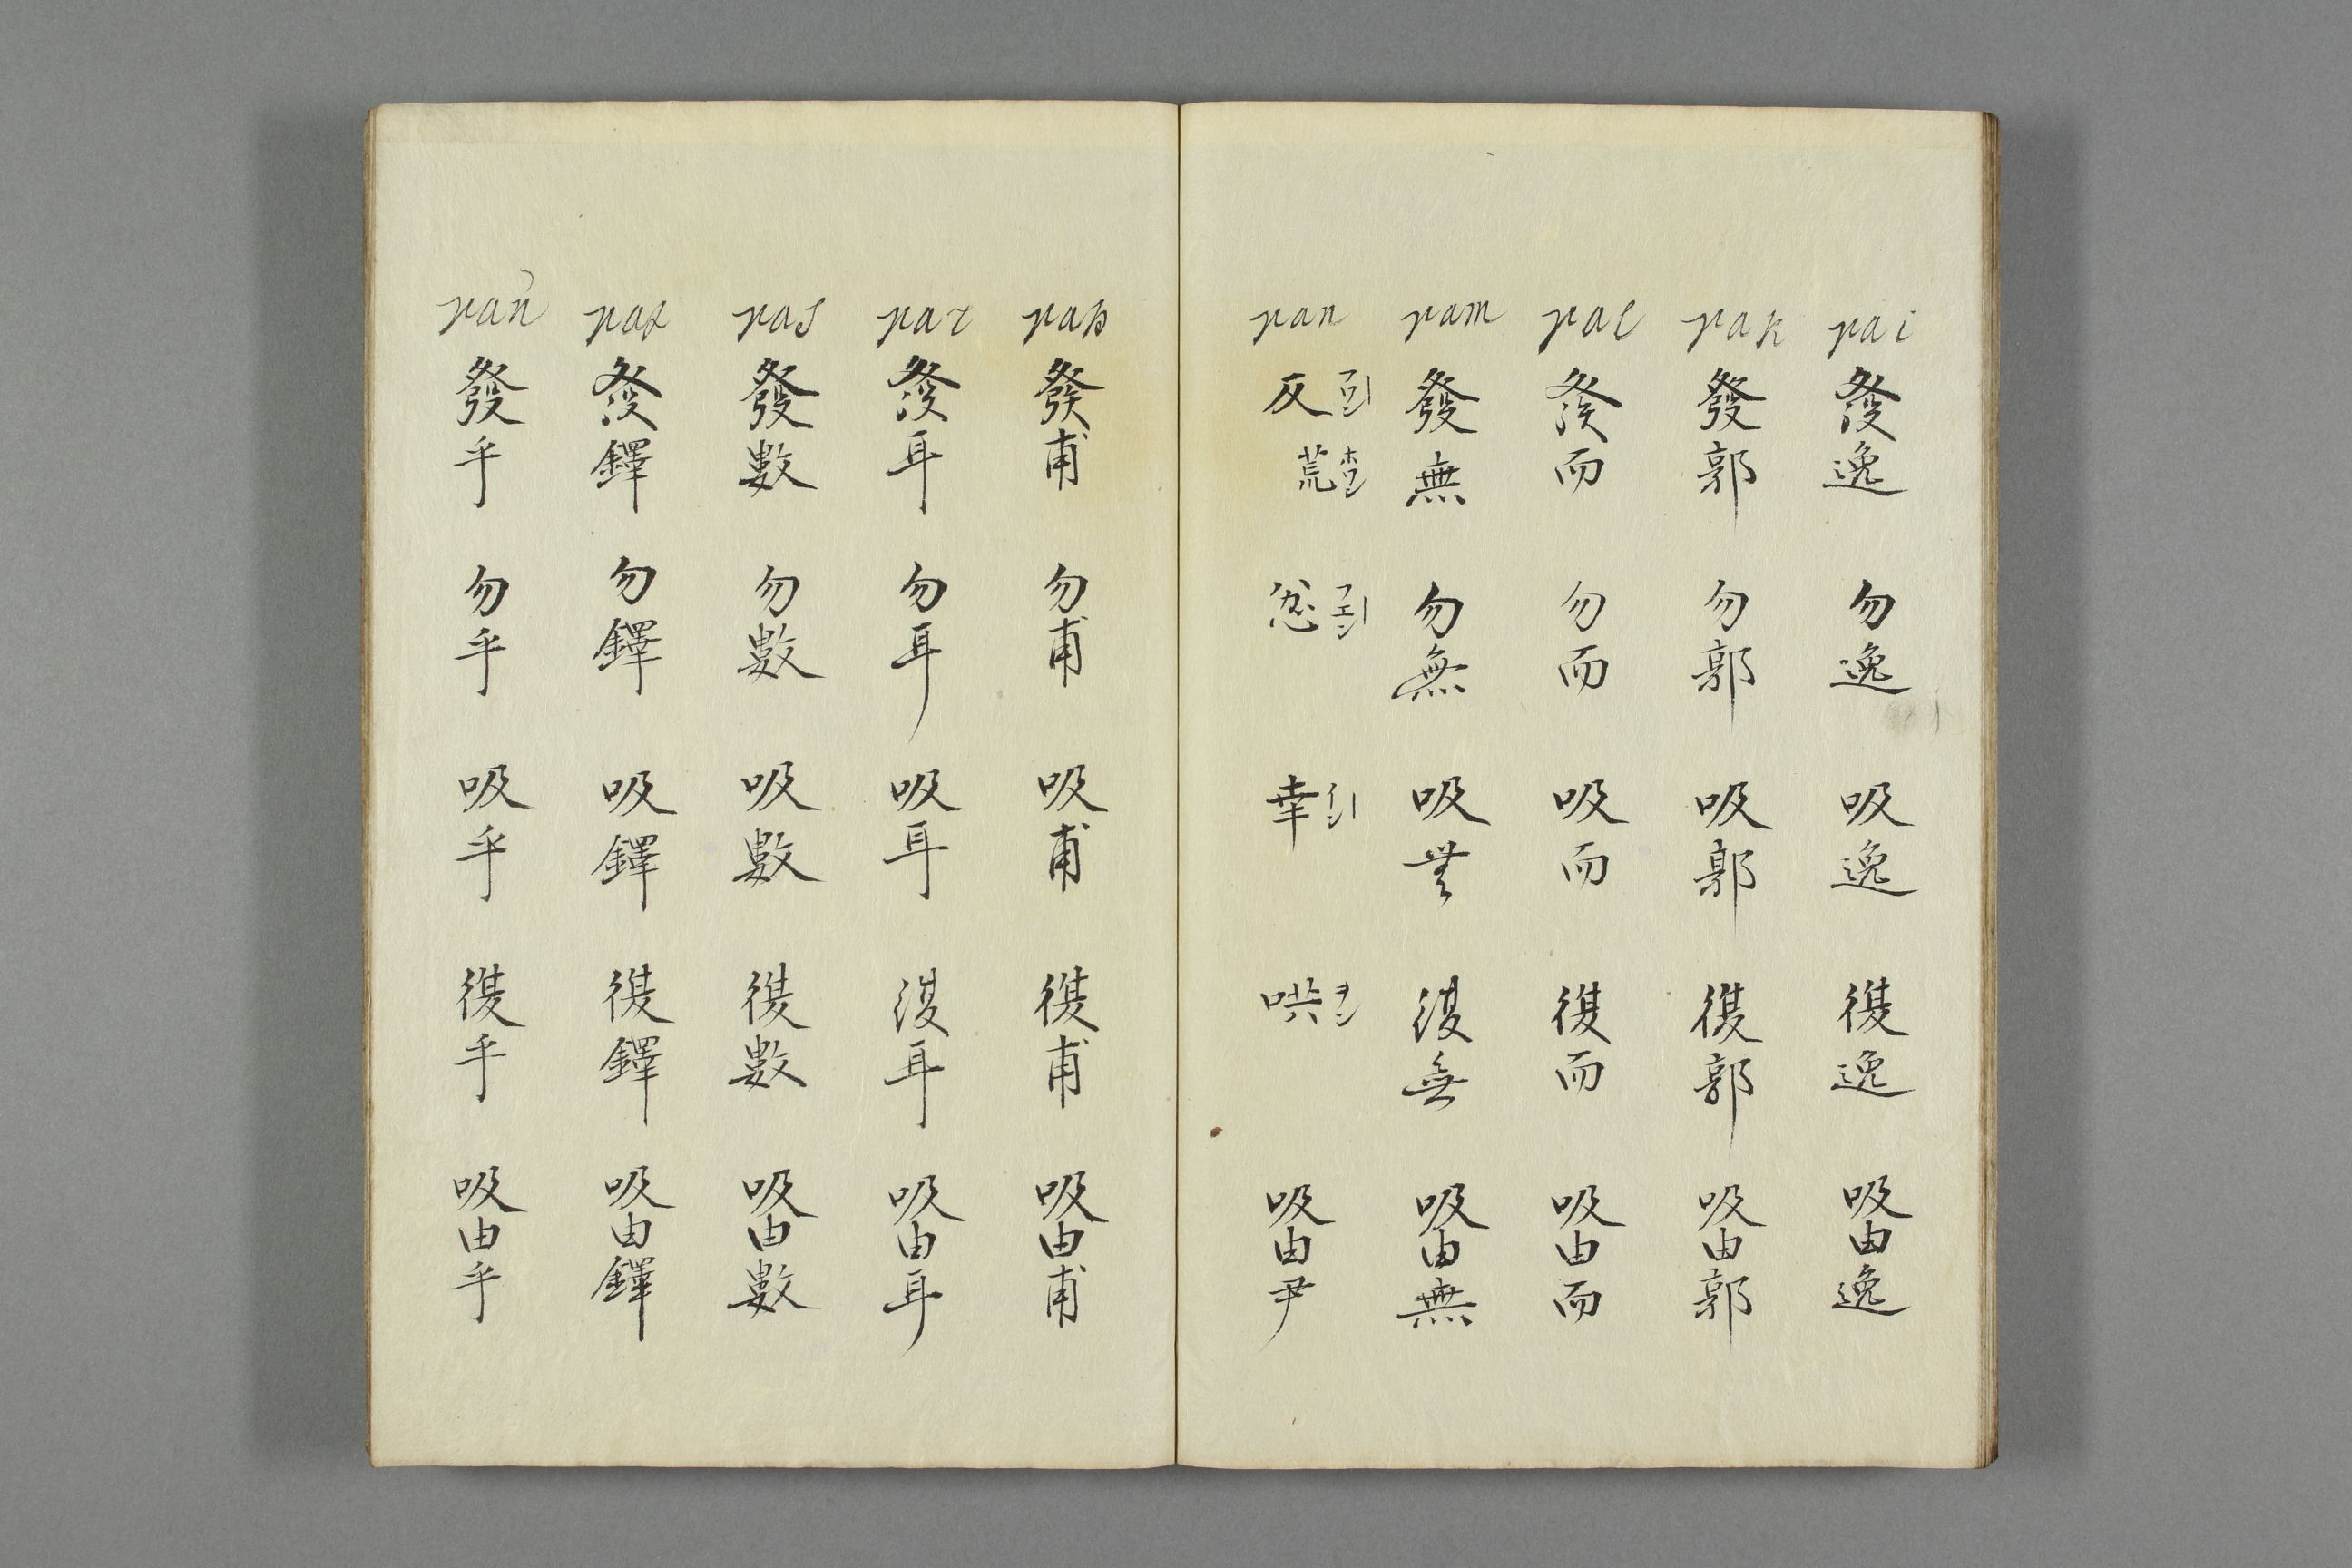 pai 發逸 勿逸 吸逸 復逸 吸由逸
pak 發郭 勿郭 吸郭 復郭 吸由郭
pal 發而 勿而 吸而 復而 吸由而
pam 發無 勿無 吸無 復無 吸由無
pan 反 荒 忿 幸 哄 吸由尹
pap 發甫 勿甫 吸甫 復甫 吸由甫
par 發耳 勿耳 吸耳 復耳 吸由耳
pas 發數 勿數 吸數 復數 吸由數
發鐸 勿鐸 吸鐸 復鐸 吸由鐸
發乎 勿乎 吸乎 復乎 吸由乎